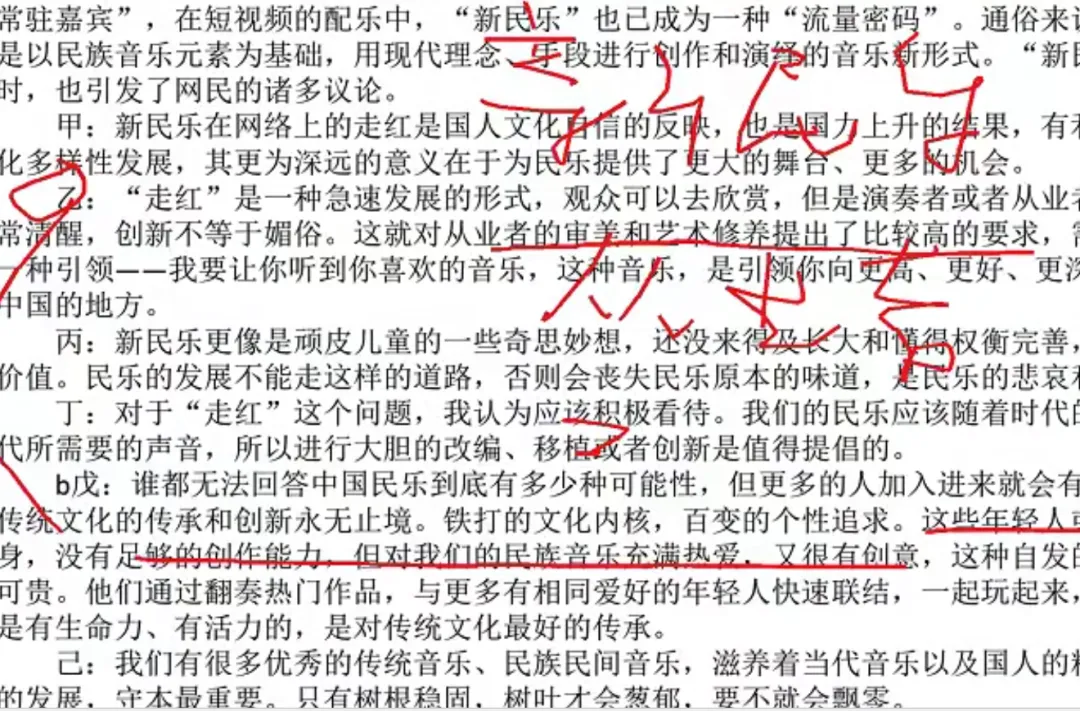 常驻嘉宾”，在短视频的配乐中，“新民乐”也已成为一种“流量密码”。通俗来说
是以民族音乐元素为基础，用现代理念、手段进行创作和演绎的音乐新形式。“新民
时，也引发了网民的诸多议论。
甲：新民乐在网络上的走红是国人文化自信的反映，也是国力上升的结果，有利
化多样性发展，其更为深远的意义在于为民乐提供了更大的舞台、更多的机会。
乙：“走红”是一种急速发展的形式，观众可以去欣赏，但是演奏者或者从业者
常清醒，创新不等于媚俗。这就对从业者的审美和艺术修养提出了比较高的要求，需
一种引领——我要让你听到你喜欢的音乐，这种音乐，是引领你向更高、更好、更深
中国的地方。
丙：新民乐更像是顽皮儿童的一些奇思妙想，还没来得及长大和懂得权衡完善，
价值。民乐的发展不能走这样的道路，否则会丧失民乐原本的味道，是民乐的悲哀和
丁：对于“走红”这个问题，我认为应该积极看待。我们的民乐应该随着时代的
代所需要的声音，所以进行大胆的改编、移植或者创新是值得提倡的。
b戊：谁都无法回答中国民乐到底有多少种可能性，但更多的人加入进来就会有
传统文化的传承和创新永无止境。铁打的文化内核，百变的个性追求。这些年轻人可
身，没有足够的创作能力，但对我们的民族音乐充满热爱，又很有创意，这种自发的
可贵。他们通过翻奏热门作品，与更多有相同爱好的年轻人快速联结，一起玩起来，
是有生命力、有活力的，是对传统文化最好的传承。
己：我们有很多优秀的传统音乐、民族民间音乐，滋养着当代音乐以及国人的精
的发展，守本最重要。只有树根稳固，树叶才会葱郁，要不就会飘零。